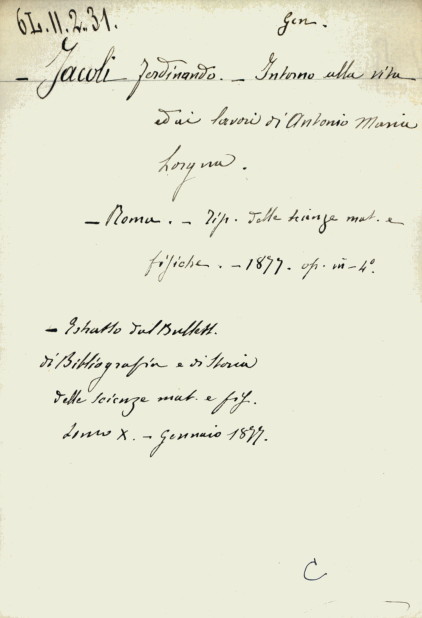 6L.11.2.31.
Gen.
- Jacoli Ferdinando. - Intorno alla vita
ed ai lavori di Antonio Maria
Lorgna.
- Roma. - Tip. delle scienze mat. e
fisiche. - 1877. op. in-4°.
- Estratto dal Bullett.
di Bibliografia e di Storia
delle scienze mat. e fis.
Tomo X. - Gennaio 1877.
C